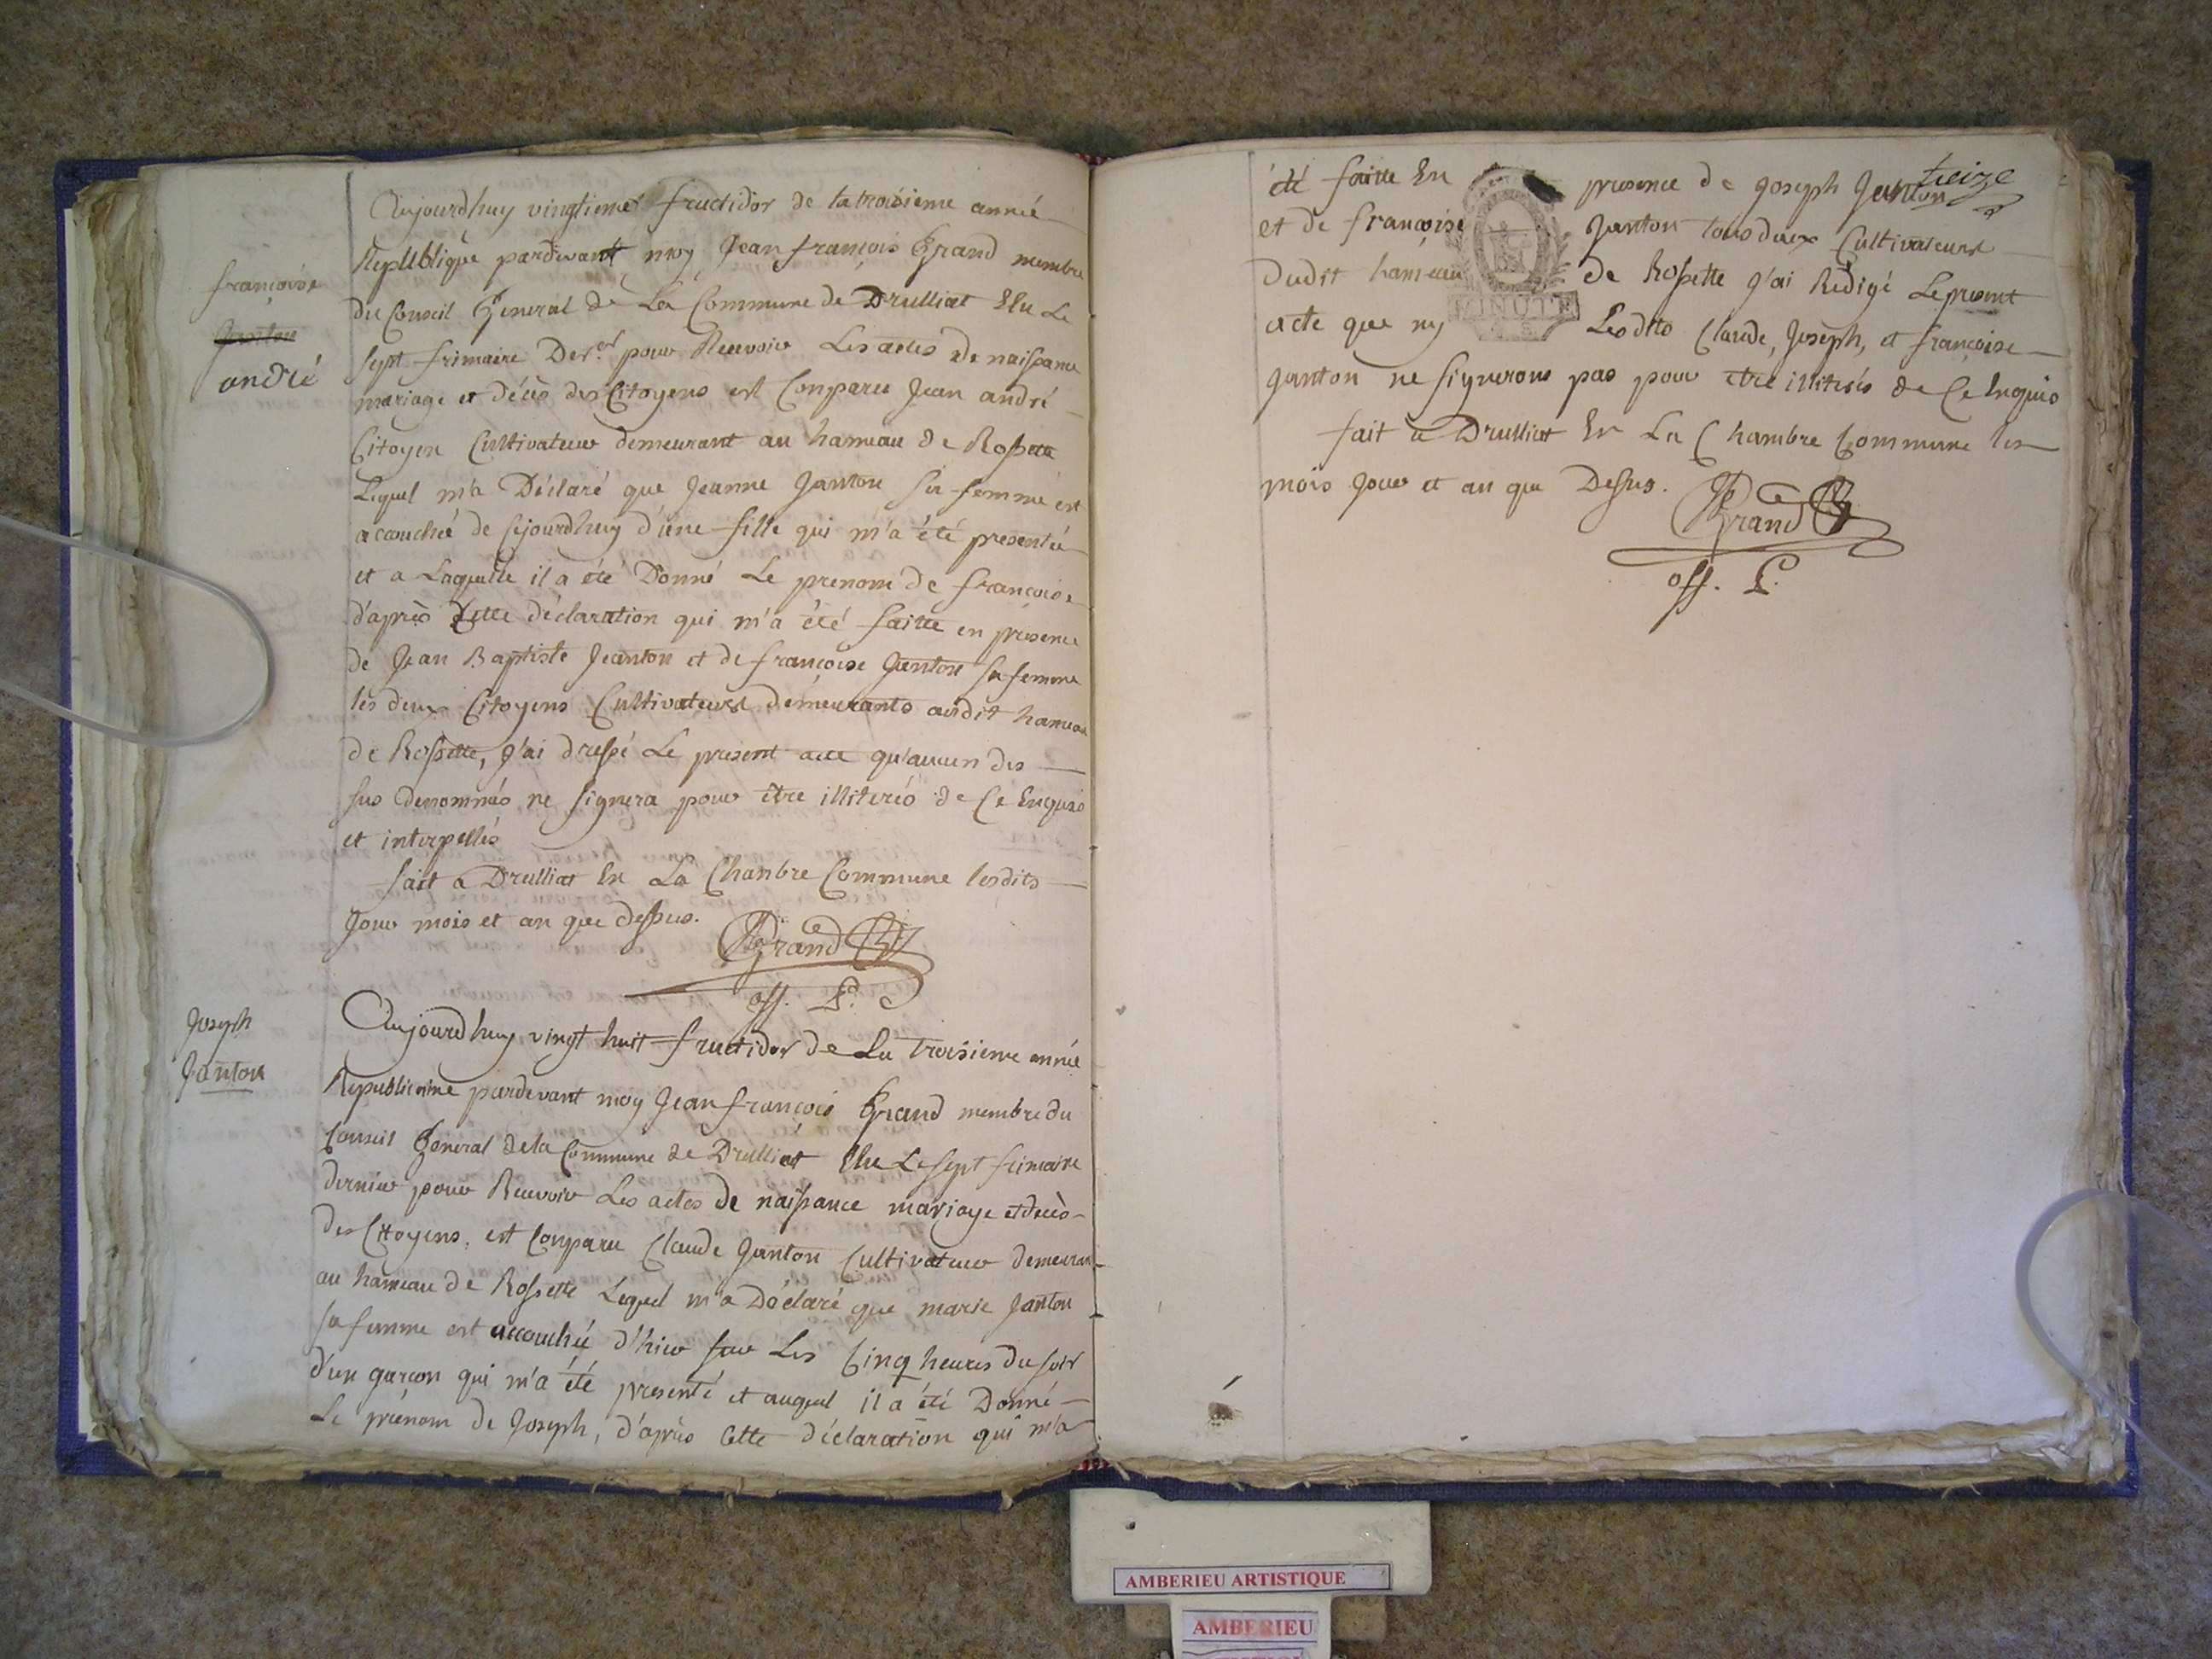 Aujourdhuy vingtieme fructidor de la troisieme année
Republique pardevant moy Jean françois Grand membre
du Conseil General de La Commune de Drulliat Elu Le
sept frimaire Der.er pour Recevoir Les actes de naissance
mariage et décès des Citoyens est Comparu Jean andré
Citoyen Cultivateur demeurant au hameau de Rossette
Lequel m'a Déclaré que Jeanne Janton sa femme est
accouchée de Cejourdhuy d'une fille qui m'a été presentée
et a Laquelle il a été Donné Le prenom de françoise
d'après Cette déclaration qui m'a été faitte en présence
de Jean Baptiste Jeanton et de françoise Janton sa femme
les deux Citoyens Cultivateurs demeurants audit hameau
de Rossette, j'ai dressé Le present acte qu'aucun des
sus denommés ne signera pour être illiterés de Ce Enquis
et interpellés
fait a Drulliat En La Chambre Commune lesdits
Jour mois et an que dessus.
Grand
off. P.
françoise
Janton
andré
Joseph
Janton
Aujourdhuy vingt huit fructidor de La troisieme année
Republicaine pardevant moy Jean françois Grand membre du
Conseil General de la Commune de Drulliat Elu Le sept frimaire
dernier pour Recevoir Les actes de naissance mariage et decès
des Citoyens, est Comparu Claude Janton Cultivateur demeurant
au hameau de Rossette Lequel m'a Déclaré que marie Janton
sa femme est accouchée d'hier sur Les Cinq heures du soir
d'un garcon qui m'a été presenté et auquel il a été Donné
Le prénom de Joseph, d'après Cette déclaration qui m'a
treize
été faitte En presence de Joseph Janton
et de françoise Janton tous deux Cultivateurs
dudit hameau de Rossette j'ai Rédigé Le present
acte que ny Lesdits Claude, Joseph, et françoise
Janton ne signerons pas pour être illiterés de Ce Enquis
fait a Drulliat En La Chambre Commune les
mois Jour et an que Dessus.
Grand
off. P.
MINUTE
AMBERIEU ARTISTIQUE
AMBERIEU